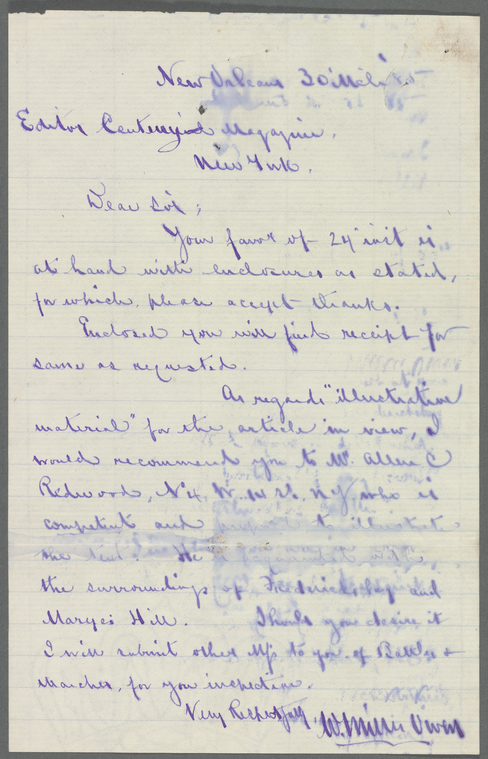 New Orleans 30
Editor Century Magazine.
New York.
Dear Sir;
Your favor of 24" inst is
at hand with enclosures as stated,
for which, please accept thanks.
Enclosed you will find receipt for
same as requested.
As regards "illustrative
material" for the article in view, I
would recommend you to Mr. Allen C
Redwood, No 4, W. 14 St. NY who is
competent and to illustrate
the He is with
the surroundings of Fredericksburg and
Maryes Hill. Should you desire it
I will submit other Mss to you of Battles &
Marches, for your inspection.
Very Respectfully
W. Miller Owen